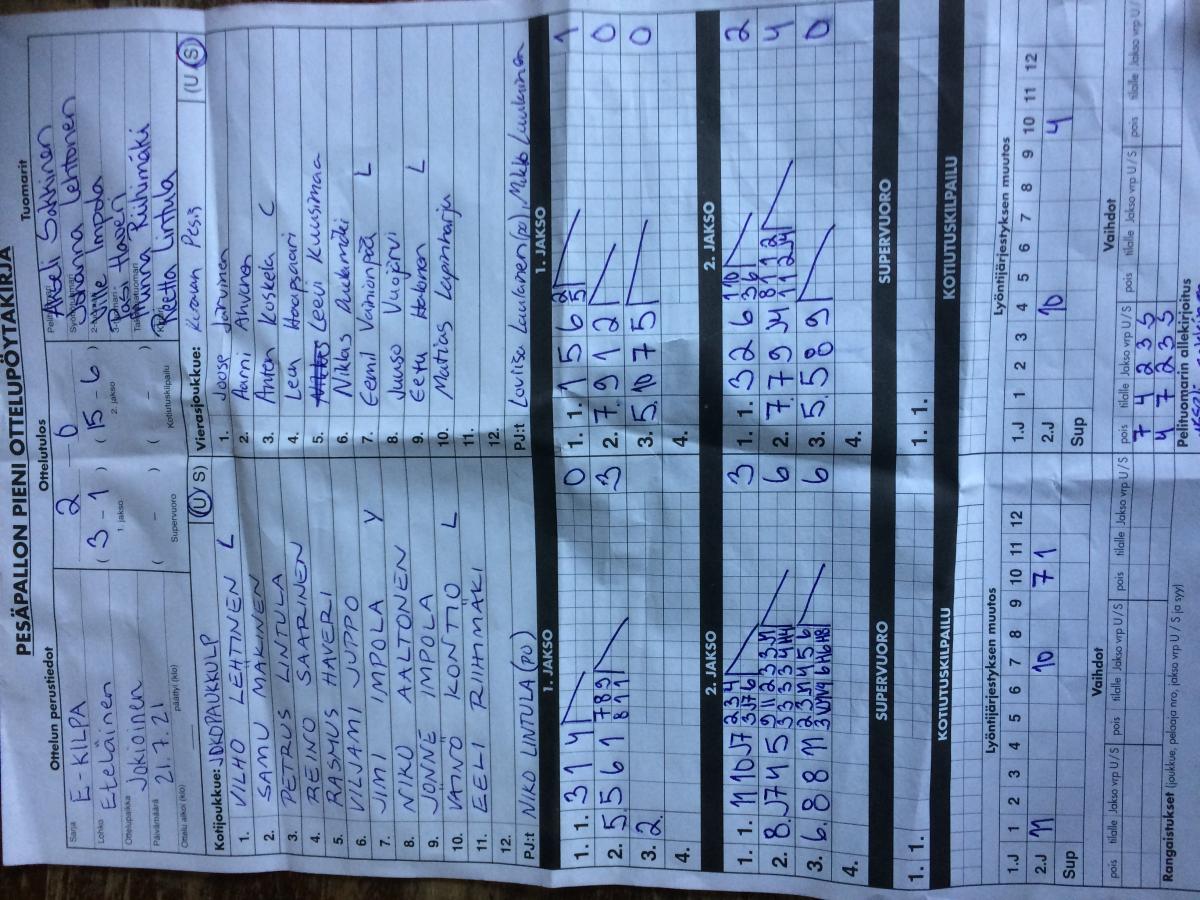 PESÄPALLON PIENI OTTELUPÖYTÄKIRJA
Ottelun perustiedot
Ottelutulos
Tuomarit
Sarja E-KILPA
Lohko Eteläinen
Ottelupaikka Jokioinen
Päivämäärä 21.7.21
Ottelu alkoi (klo)
päättyi (klo)
2 - 0
( 3 - 1 ) ( 15 - 6 )
1. jakso 2. jakso
( - ) ( - )
Supervuoro Kotiutuskilpailu
Lehtonen
Ville Impola
Pasi Haveri
Minna Riihimäki
Reetta Lintula
Kotijoukkue: (U S)
1. VILHO LEHTINEN L
2. SAMU MÄKINEN
3. PETRUS LINTULA
4. REINO SAARINEN
5. RASMUS HAVERI
6. VILJAMI JUPPO
7. JIMI IMPOLA Y
8. NIKO AALTONEN
9. JONNE IMPOLA
10. VÄINÖ KONTIO L
11. EELI RIIHIMÄKI
12.
PJ:t NIKO LINTULA (PU)
Vierasjoukkue: Pesis (U S)
1. Joose Järvinen
2. Aarni Ahvenus
3. Anton Koskela C
4. Leo Haapsaari
5. Leevi Kuusimaa
6. Niklas
7. Eemil Vainionpää L
8. Juuso Vuojärvi
9. Eetu Hakonen L
10. Matias Lapinharju
11.
12.
PJ:t Loviisa Laulainen (pu), Mikko Luukkainen
1. JAKSO
1. 1. 3 1 4 0
2. 5. 5 6 1 3
3. 2.
4.
1. JAKSO
1. 1. 1 5 6 1
2. 7. 9 1 2 0
3. 5. 10 7 5 0
4.
2. JAKSO
1. 1. 11 10 J7 3
2. 8. J7 4 5 6
3. 6. 8 8 11 6
4.
2. JAKSO
1. 1. 3 2 6 2
2. 7. 7 9 J4 4
3. 5. 5 8 9 0
4.
SUPERVUORO
1. 1.
SUPERVUORO
1. 1.
KOTIUTUSKILPAILU
KOTIUTUSKILPAILU
Lyöntijärjestyksen muutos
1 2 3 4 5 6 7 8 9 10 11 12
1.J
2.J 11 10 7 1
Sup
Lyöntijärjestyksen muutos
1 2 3 4 5 6 7 8 9 10 11 12
1.J
2.J 10 4
Sup
Vaihdot
pois tilalle Jakso vrp U/S pois tilalle Jakso vrp U/S pois tilalle Jakso vrp U/S
Vaihdot
pois tilalle Jakso vrp U/S pois tilalle Jakso vrp U/S pois tilalle Jakso vrp U/
7 4 2 3 S
4 7 2 3 S
Rangaistukset (joukkue, pelaaja nro, jakso vrp U / S ja syy)
Pelituomarin allekirjoitus